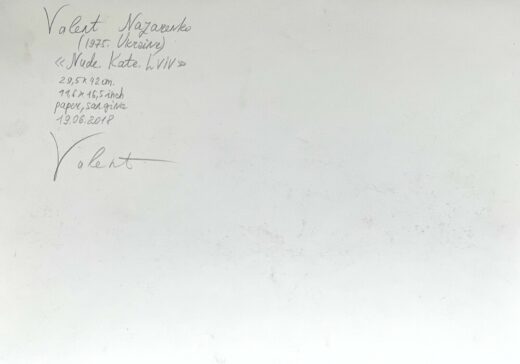 Valent Nazarenko
(1975. Ukraine)
«Nude. Kate. LVIV»
29,5 x 42 cm.
11,6 x 16,5 inch
paper, sangina
19.06.2018
Valent